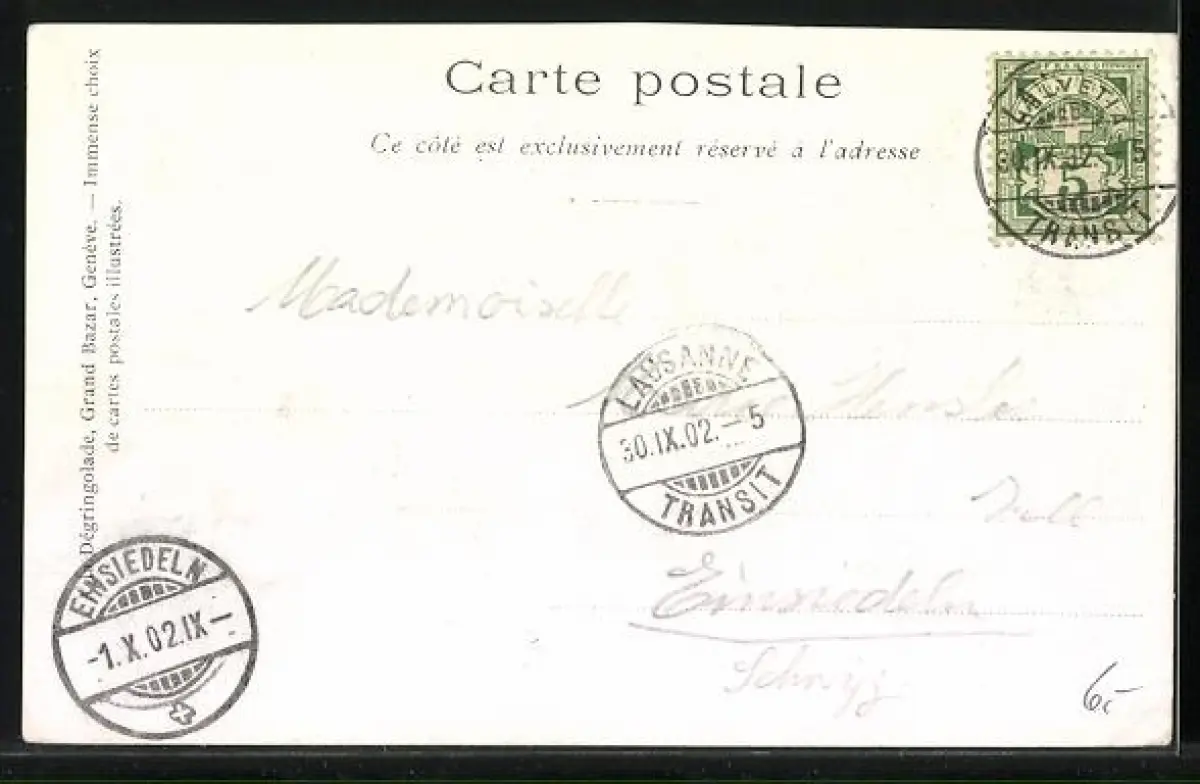 Carte postale
Ce côté est exclusivement réservé à l'adresse
Dégringolade, Grand Bazar, Genève. — Immense choix
de cartes postales illustrées.
FRANCO
HELVETIA
5
30.IX.02.–5
TRANSIT
Mademoiselle
LAUSANNE
30.IX.02.–5
TRANSIT
Einsiedeln
Schwyz
EINSIEDELN
-1.X.02.IX–
6.-